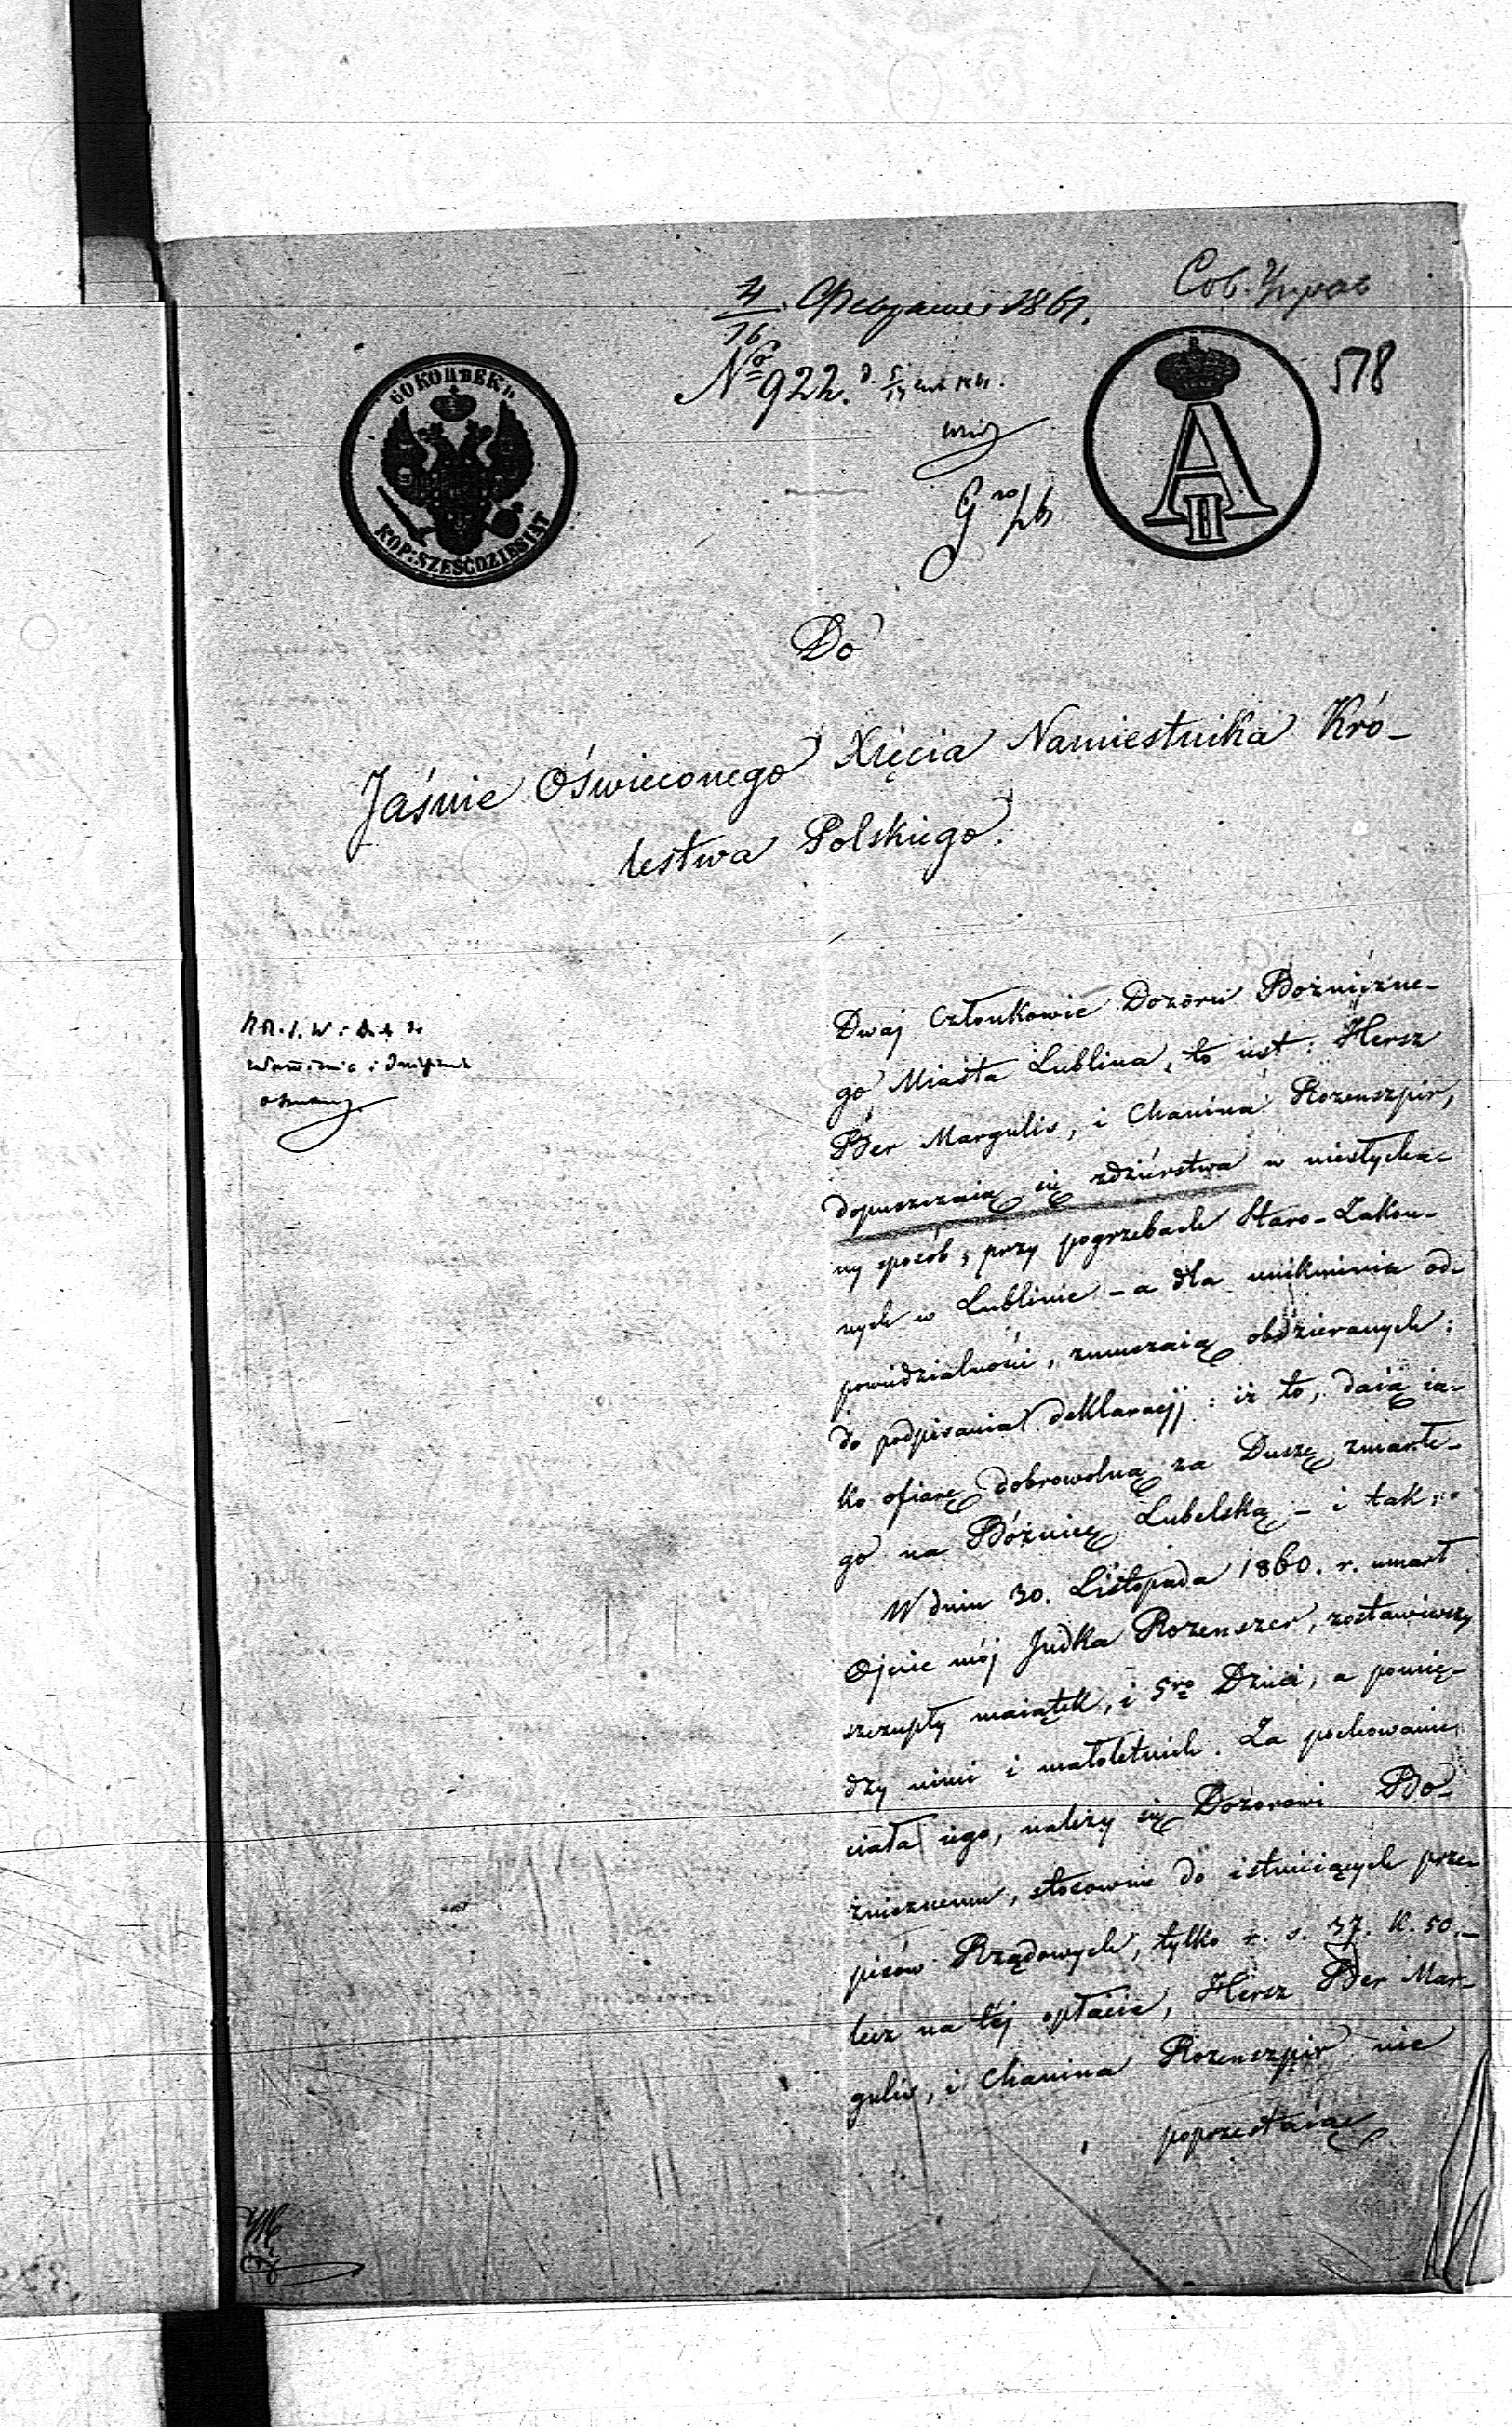 4/16 1861.
578
№ 922.
60 КОПѢЕКЪ
KOP: SZEŚĆDZIESIĄT
A II
Do
Jaśnie Oświeconego Xięcia Namiestnika Kró-
lestwa Polskiego.
Dwaj Członkowie Dozoru Bożniczne-
go Miasta Lublina, to iest: Hersz
Ber Margulis, i Chanina Rozenszpir,
dopuszczaią się zdzierstwa w niesłycha-
ny sposób, przy pogrzebach Staro-Zakon-
nych w Lublinie - a dla uniknienia od-
powiedzialności, zmuszaią obdzieranych:
do podpisania deklaracyj: iż to, daią ia-
ko ofiarę dobrowolną za Duszę zmarłe-
go na Bóżnicę Lubelską - i tak:
W dniu 30. Listopada 1860. r. umarł
Ojciec mój Judka Rozenszer, zostawiwszy
szczupły maiątek, i 5ro Dzieci, a pomię-
dzy nimi i małoletnich. Za pochowanie
ciała iego, należy się Dozorowi Bo-
żnicznemu, stosownie do istnieiących prze-
pisów Rządowych, tylko r. s. 37. k. 50.-
lecz na téj opłacie, Hersz Ber Mar-
gulis, i Chanina Rozenszpir nie
poprzestaiąc